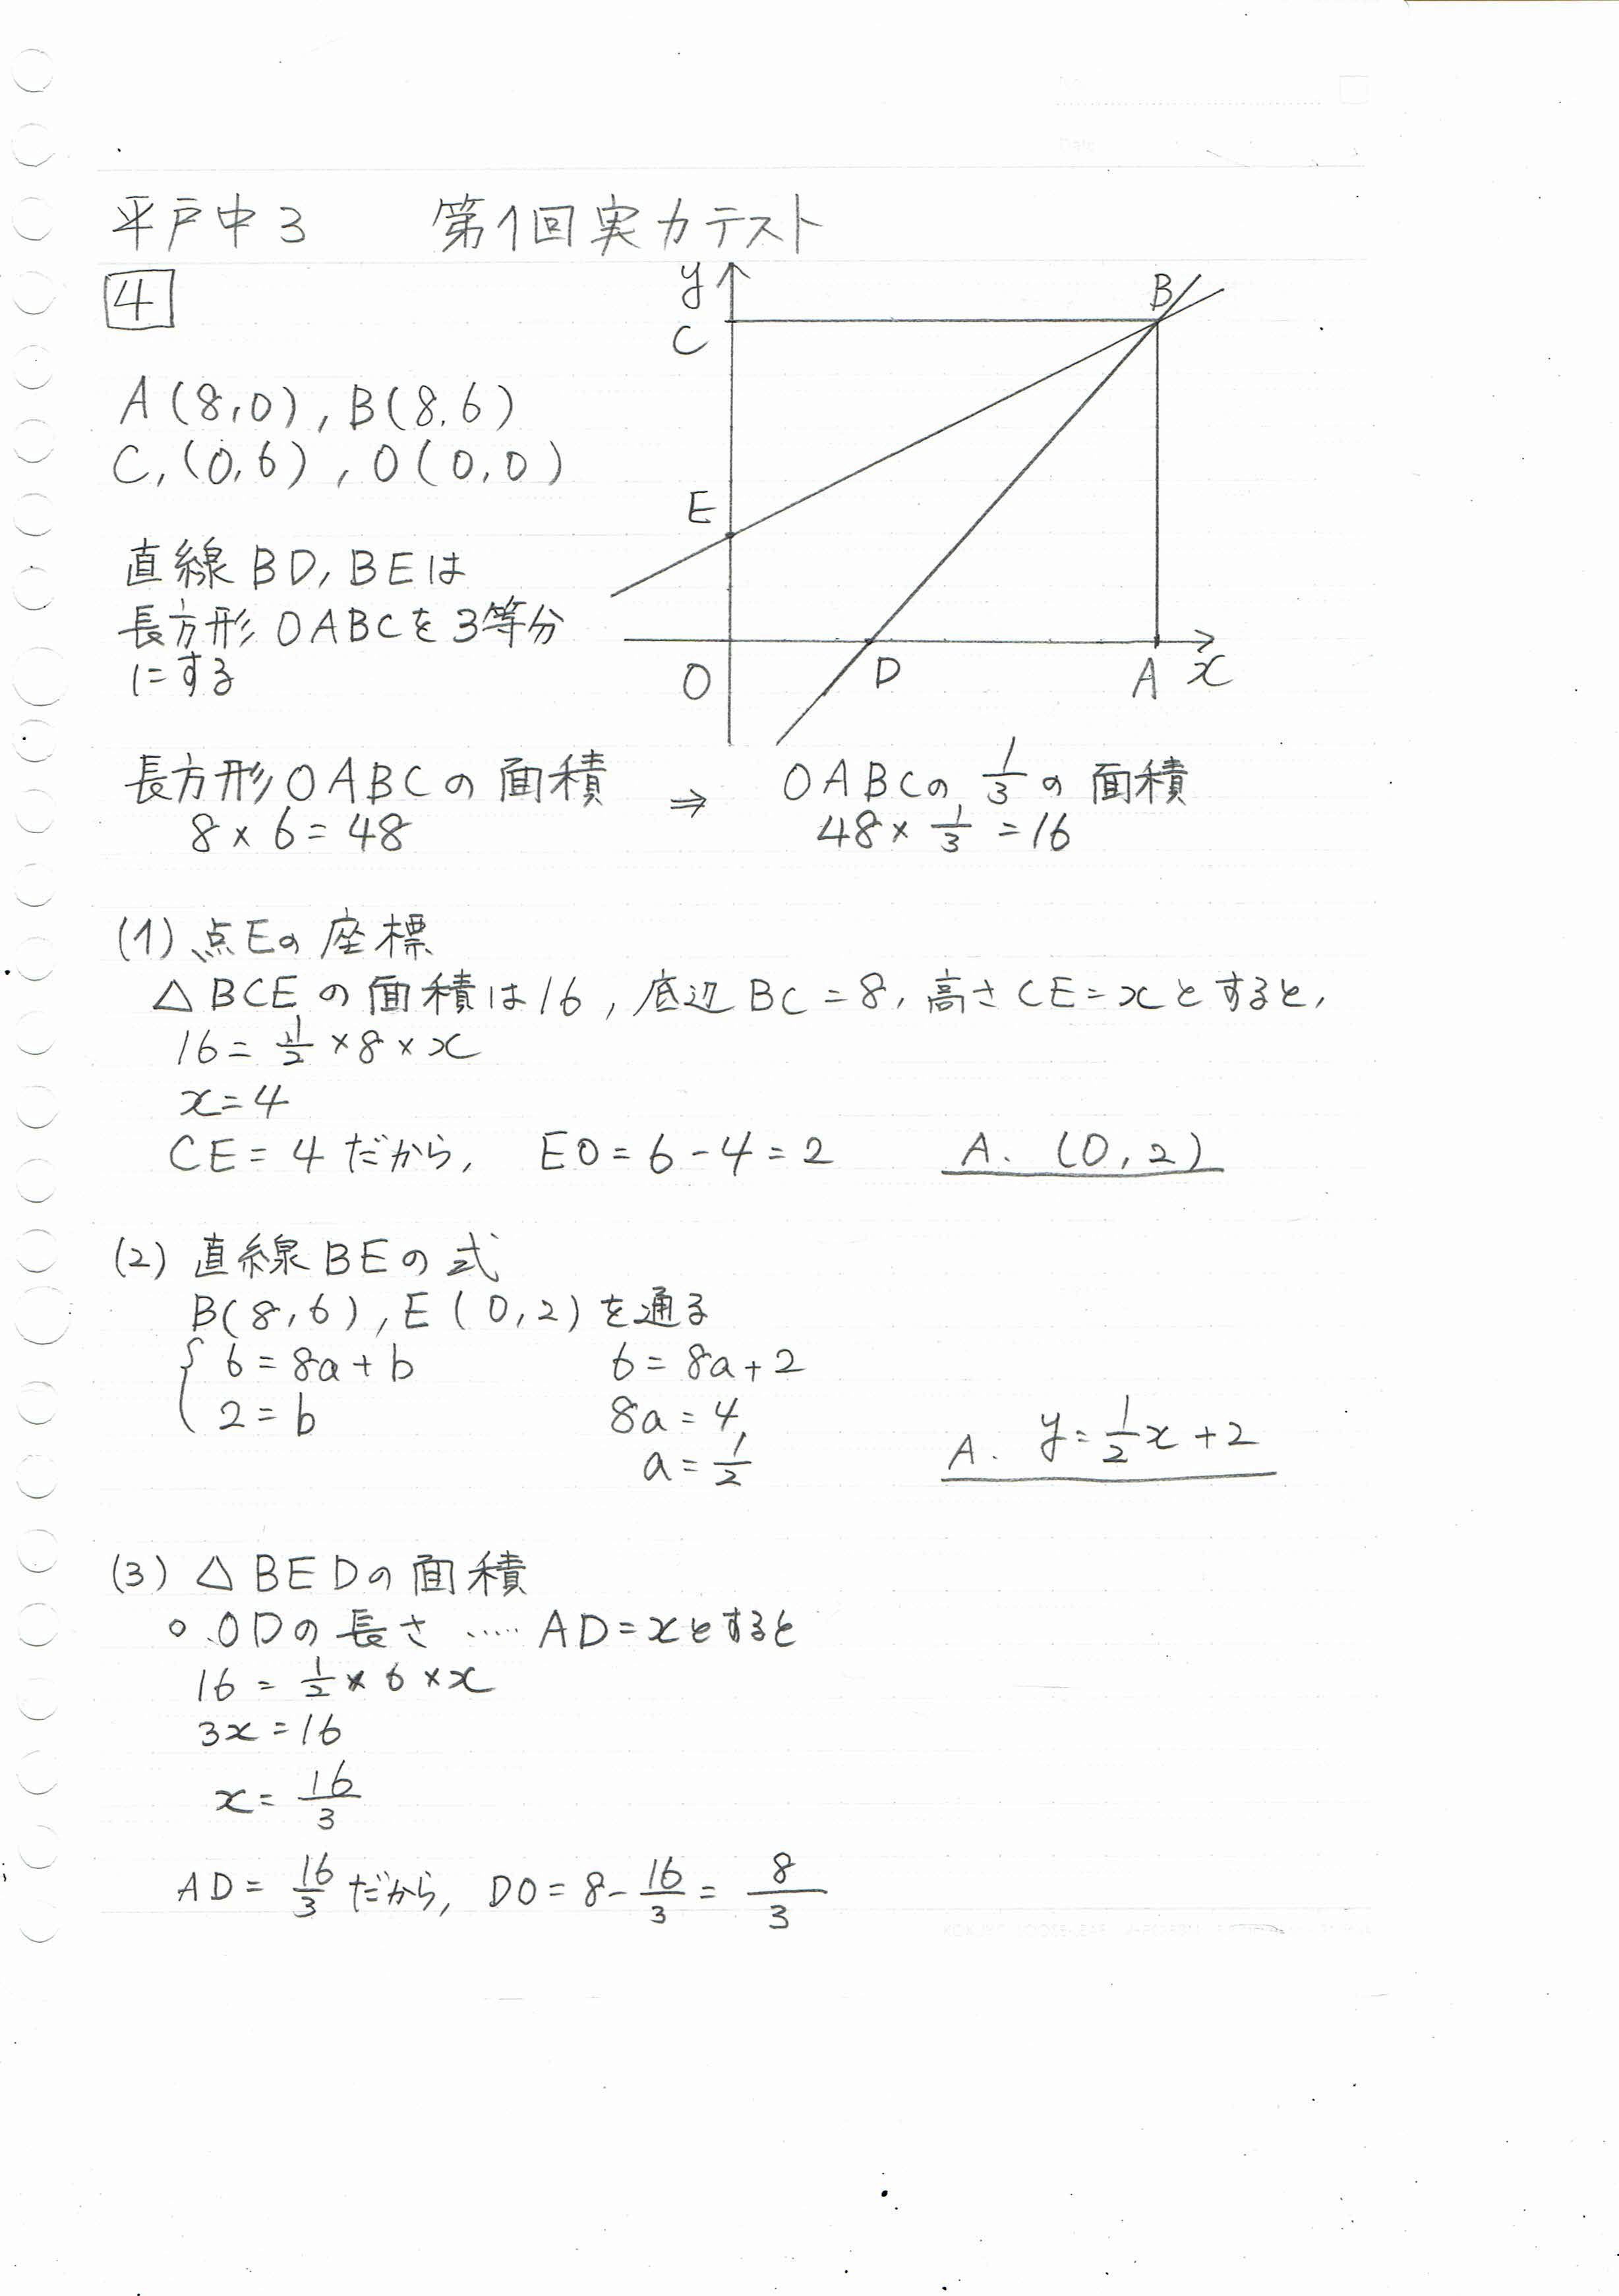 平戸中3 第1回実力テスト
4
y
C
B
E
O
D
A
x
A(8,0), B(8,6)
C,(0,6), O(0,0)
直線BD, BEは
長方形OABCを3等分
にする
長方形OABCの面積 ⇒ OABCの1/3の面積
8×6=48 48×1/3=16
(1) 点Eの座標
△BCEの面積は16, 底辺BC=8, 高さCE=xとすると,
16=1/2×8×x
x=4
CE=4だから, EO=6-4=2 A. (0,2)
(2) 直線BEの式
B(8,6), E(0,2)を通る
{ 6=8a+b 6=8a+2
2=b 8a=4
a=1/2 A. y=1/2x+2
(3) △BEDの面積
○ ODの長さ ····· AD=xとすると
16=1/2×6×x
3x=16
x=16/3
AD=16/3だから, DO=8-16/3=8/3